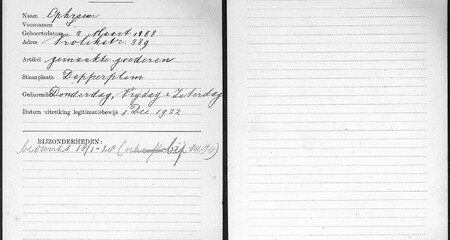 Naam Ephraim
Voornamen
Geboortedatum 2 Maart 1888
Adres Vrolikstr 389
Artikel gemaakte goederen
Staanplaats Dapperplein
Gedurende Donderdag, Vrijdag & Zaterdag
Datum uitreiking legitimatiebewijs 1 Dec. 1922
BIJZONDERHEDEN:
bedankt 18/1-28